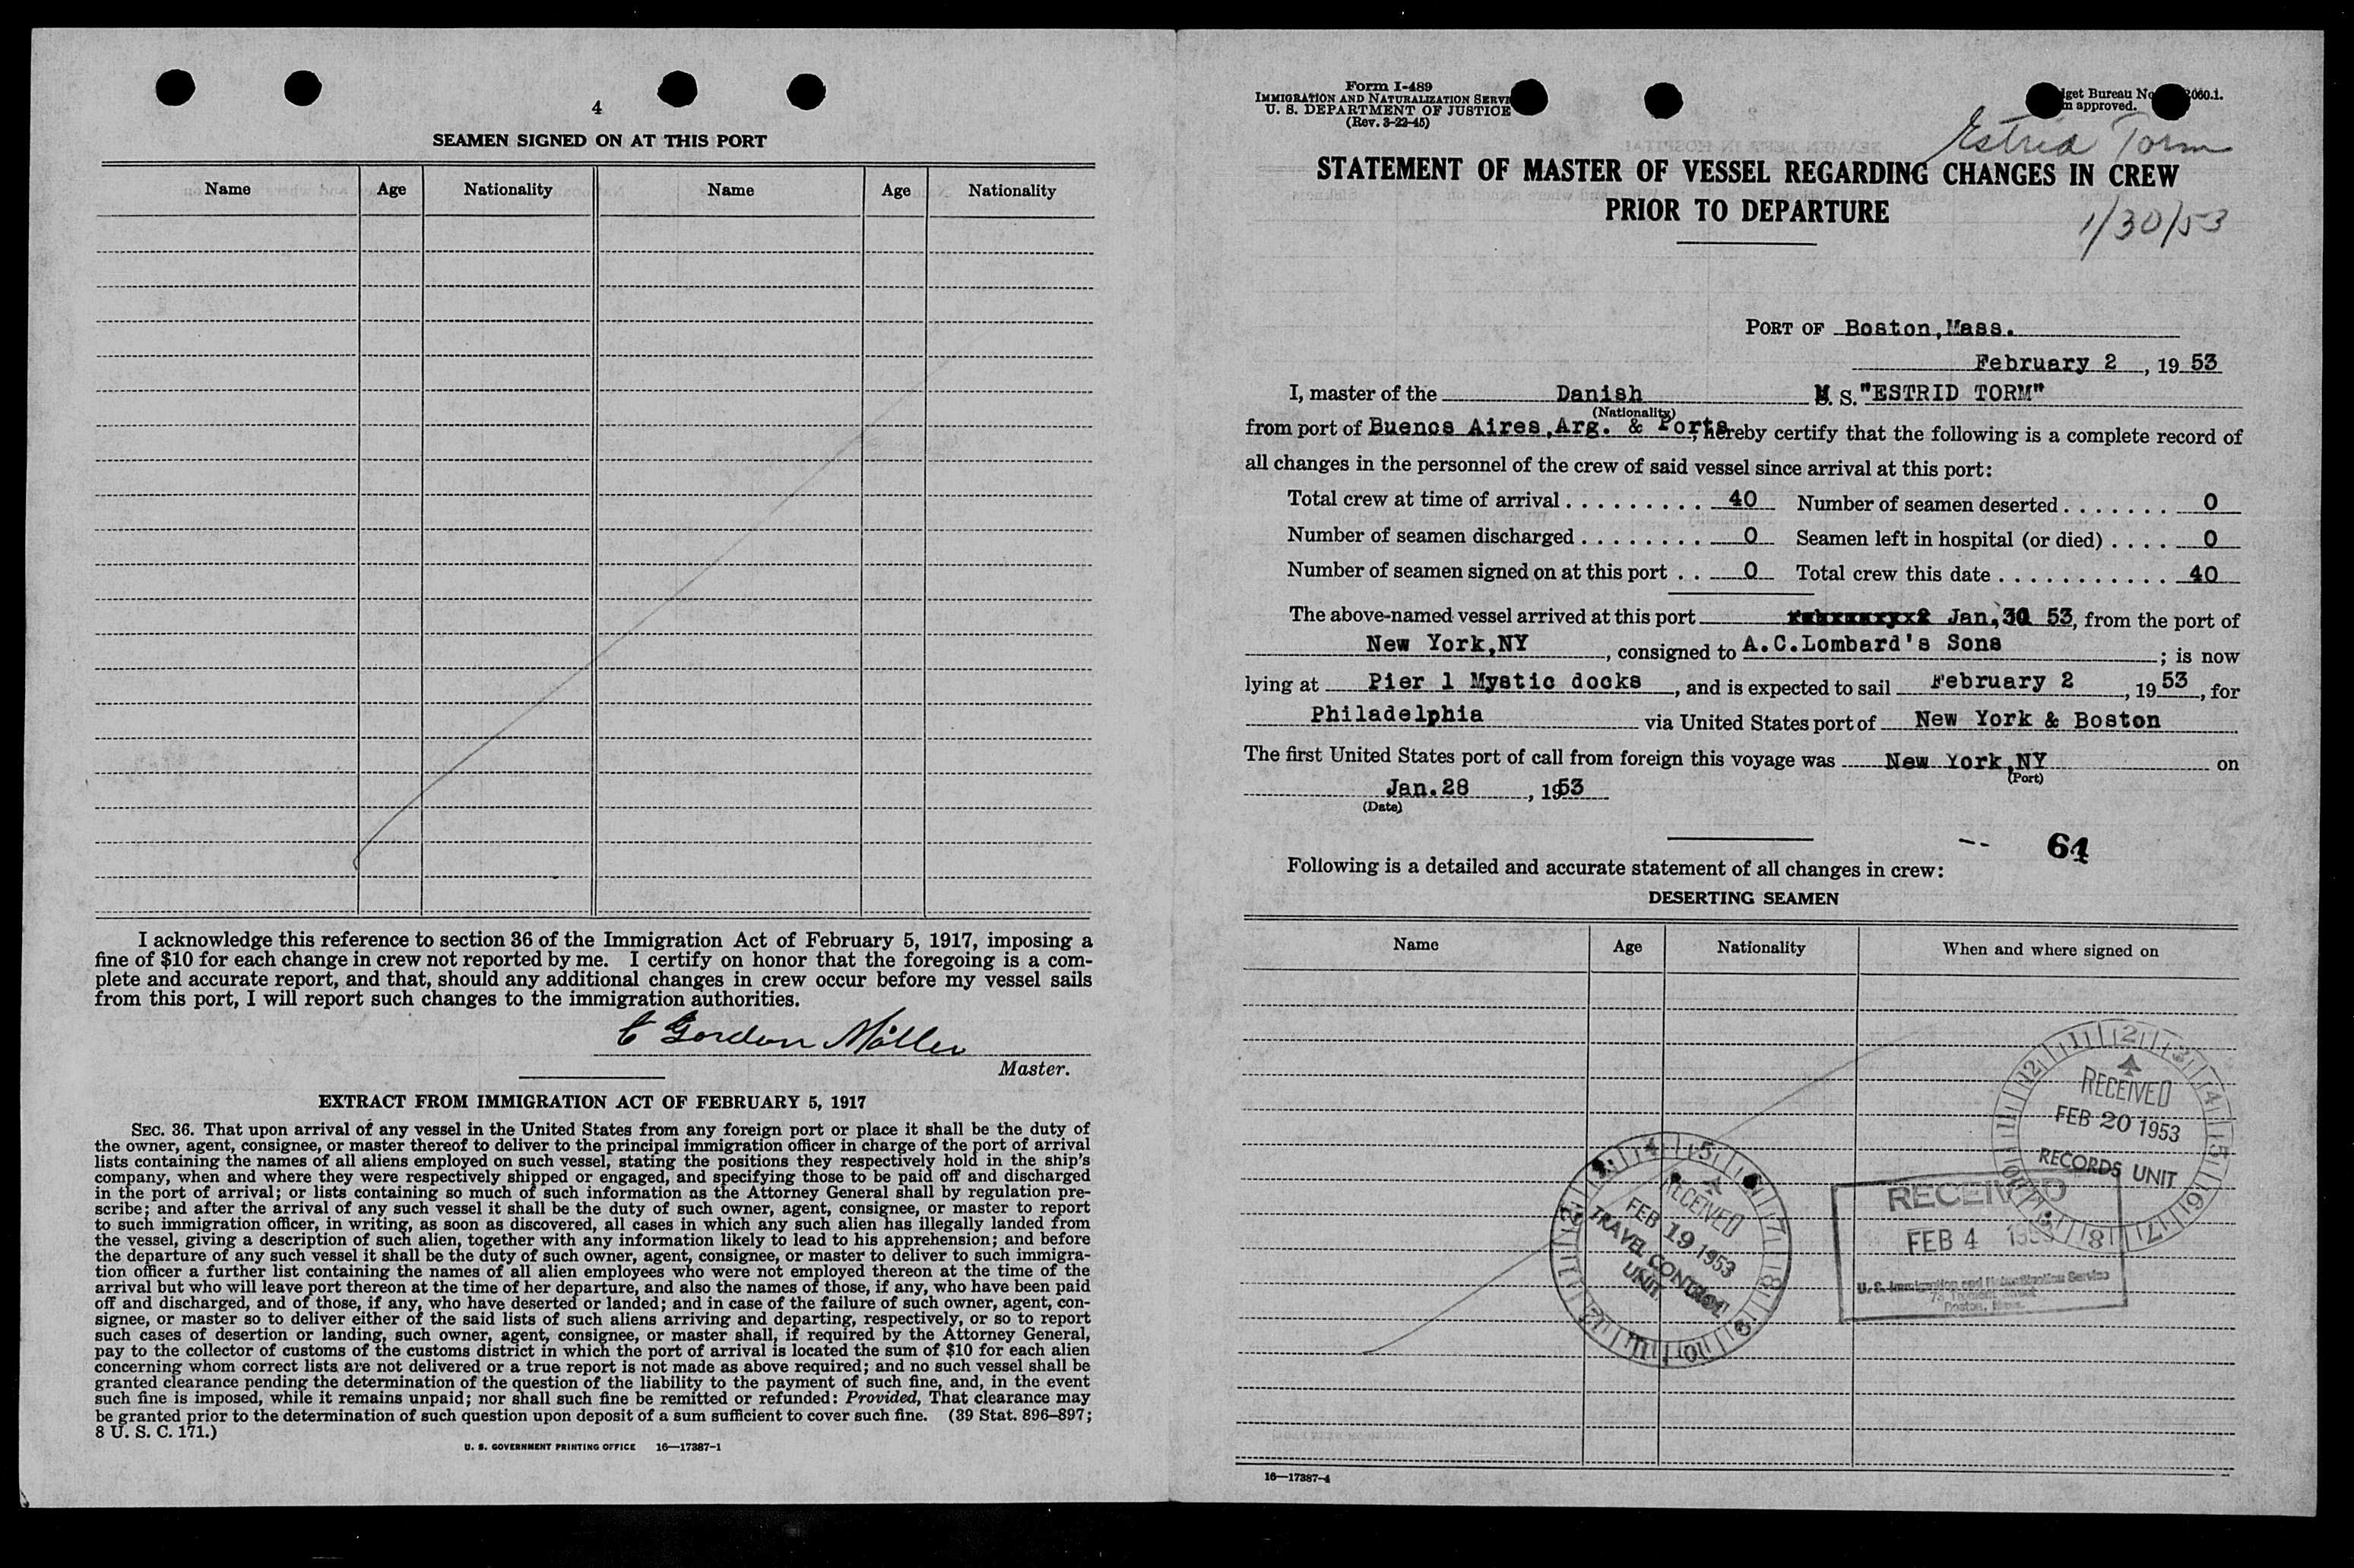 4
SEAMEN SIGNED ON AT THIS PORT
Name Age Nationality Name Age Nationality
I acknowledge this reference to section 36 of the Immigration Act of February 5, 1917, imposing a
fine of $10 for each change in crew not reported by me. I certify on honor that the foregoing is a com-
plete and accurate report, and that, should any additional changes in crew occur before my vessel sails
from this port, I will report such changes to the immigration authorities.
C Gordon Möller
Master.
EXTRACT FROM IMMIGRATION ACT OF FEBRUARY 5, 1917
SEC. 36. That upon arrival of any vessel in the United States from any foreign port or place it shall be the duty of
the owner, agent, consignee, or master thereof to deliver to the principal immigration officer in charge of the port of arrival
lists containing the names of all aliens employed on such vessel, stating the positions they respectively hold in the ship's
company, when and where they were respectively shipped or engaged, and specifying those to be paid off and discharged
in the port of arrival; or lists containing so much of such information as the Attorney General shall by regulation pre-
scribe; and after the arrival of any such vessel it shall be the duty of such owner, agent, consignee, or master to report
to such immigration officer, in writing, as soon as discovered, all cases in which any such alien has illegally landed from
the vessel, giving a description of such alien, together with any information likely to lead to his apprehension; and before
the departure of any such vessel it shall be the duty of such owner, agent, consignee, or master to deliver to such immigra-
tion officer a further list containing the names of all alien employees who were not employed thereon at the time of the
arrival but who will leave port thereon at the time of her departure, and also the names of those, if any, who have been paid
off and discharged, and of those, if any, who have deserted or landed; and in case of the failure of such owner, agent, con-
signee, or master so to deliver either of the said lists of such aliens arriving and departing, respectively, or so to report
such cases of desertion or landing, such owner, agent, consignee, or master shall, if required by the Attorney General,
pay to the collector of customs of the customs district in which the port of arrival is located the sum of $10 for each alien
concerning whom correct lists are not delivered or a true report is not made as above required; and no such vessel shall be
granted clearance pending the determination of the question of the liability to the payment of such fine, and, in the event
such fine is imposed, while it remains unpaid; nor shall such fine be remitted or refunded: Provided, That clearance may
be granted prior to the determination of such question upon deposit of a sum sufficient to cover such fine. (39 Stat. 896–897;
8 U. S. C. 171.)
U. S. GOVERNMENT PRINTING OFFICE 16—17387-1
Form I-489
IMMIGRATION AND NATURALIZATION SERVI
U. S. DEPARTMENT OF JUSTICE
(Rev. 3-22-45)
get Bureau No. 060.1.
m approved.
Estrid Torm
STATEMENT OF MASTER OF VESSEL REGARDING CHANGES IN CREW
PRIOR TO DEPARTURE
1/30/53
PORT OF Boston, Mass.
February 2, 19 53
I, master of the Danish M. S. "ESTRID TORM"
(Nationality)
from port of Buenos Aires, Arg. & Ports, hereby certify that the following is a complete record of
all changes in the personnel of the crew of said vessel since arrival at this port:
Total crew at time of arrival 40 Number of seamen deserted 0
Number of seamen discharged 0 Seamen left in hospital (or died) 0
Number of seamen signed on at this port 0 Total crew this date 40
The above-named vessel arrived at this port Jan, 30 53, from the port of
New York, NY, consigned to A.C.Lombard's Sons; is now
lying at Pier 1 Mystic docks, and is expected to sail February 2, 19 53, for
Philadelphia via United States port of New York & Boston
The first United States port of call from foreign this voyage was New York, NY on
(Port)
Jan. 28, 1953
(Date)
64
Following is a detailed and accurate statement of all changes in crew:
DESERTING SEAMEN
Name Age Nationality When and where signed on
RECEIVED
FEB 20 1953
RECORDS UNIT
RECEIVED
FEB 19 1953
TRAVEL CONTROL
UNIT
RECEIVED
FEB 4 1953
U. S. Immigration and Naturalization Service
Boston, Mass.
16—17387-4